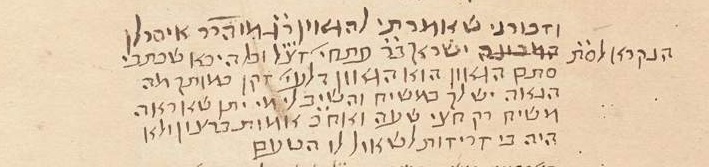 וזכורני שאמרתי להגאון ר' מוהר"ר איסרלן
הנקרא לס"ת המכונה ישראל בר פתחי' זצ"ל וכל היכא שכתבי
סתם הגאון הוא הגאון דלעי' זקן כמותך מה
הנאה יש לך במשיח והשיב לי מי יתן שאראה
משיח רק חצי שעה ואח"כ אמות ברצון ולא
היה בי זריזות לשאול לו הטעם